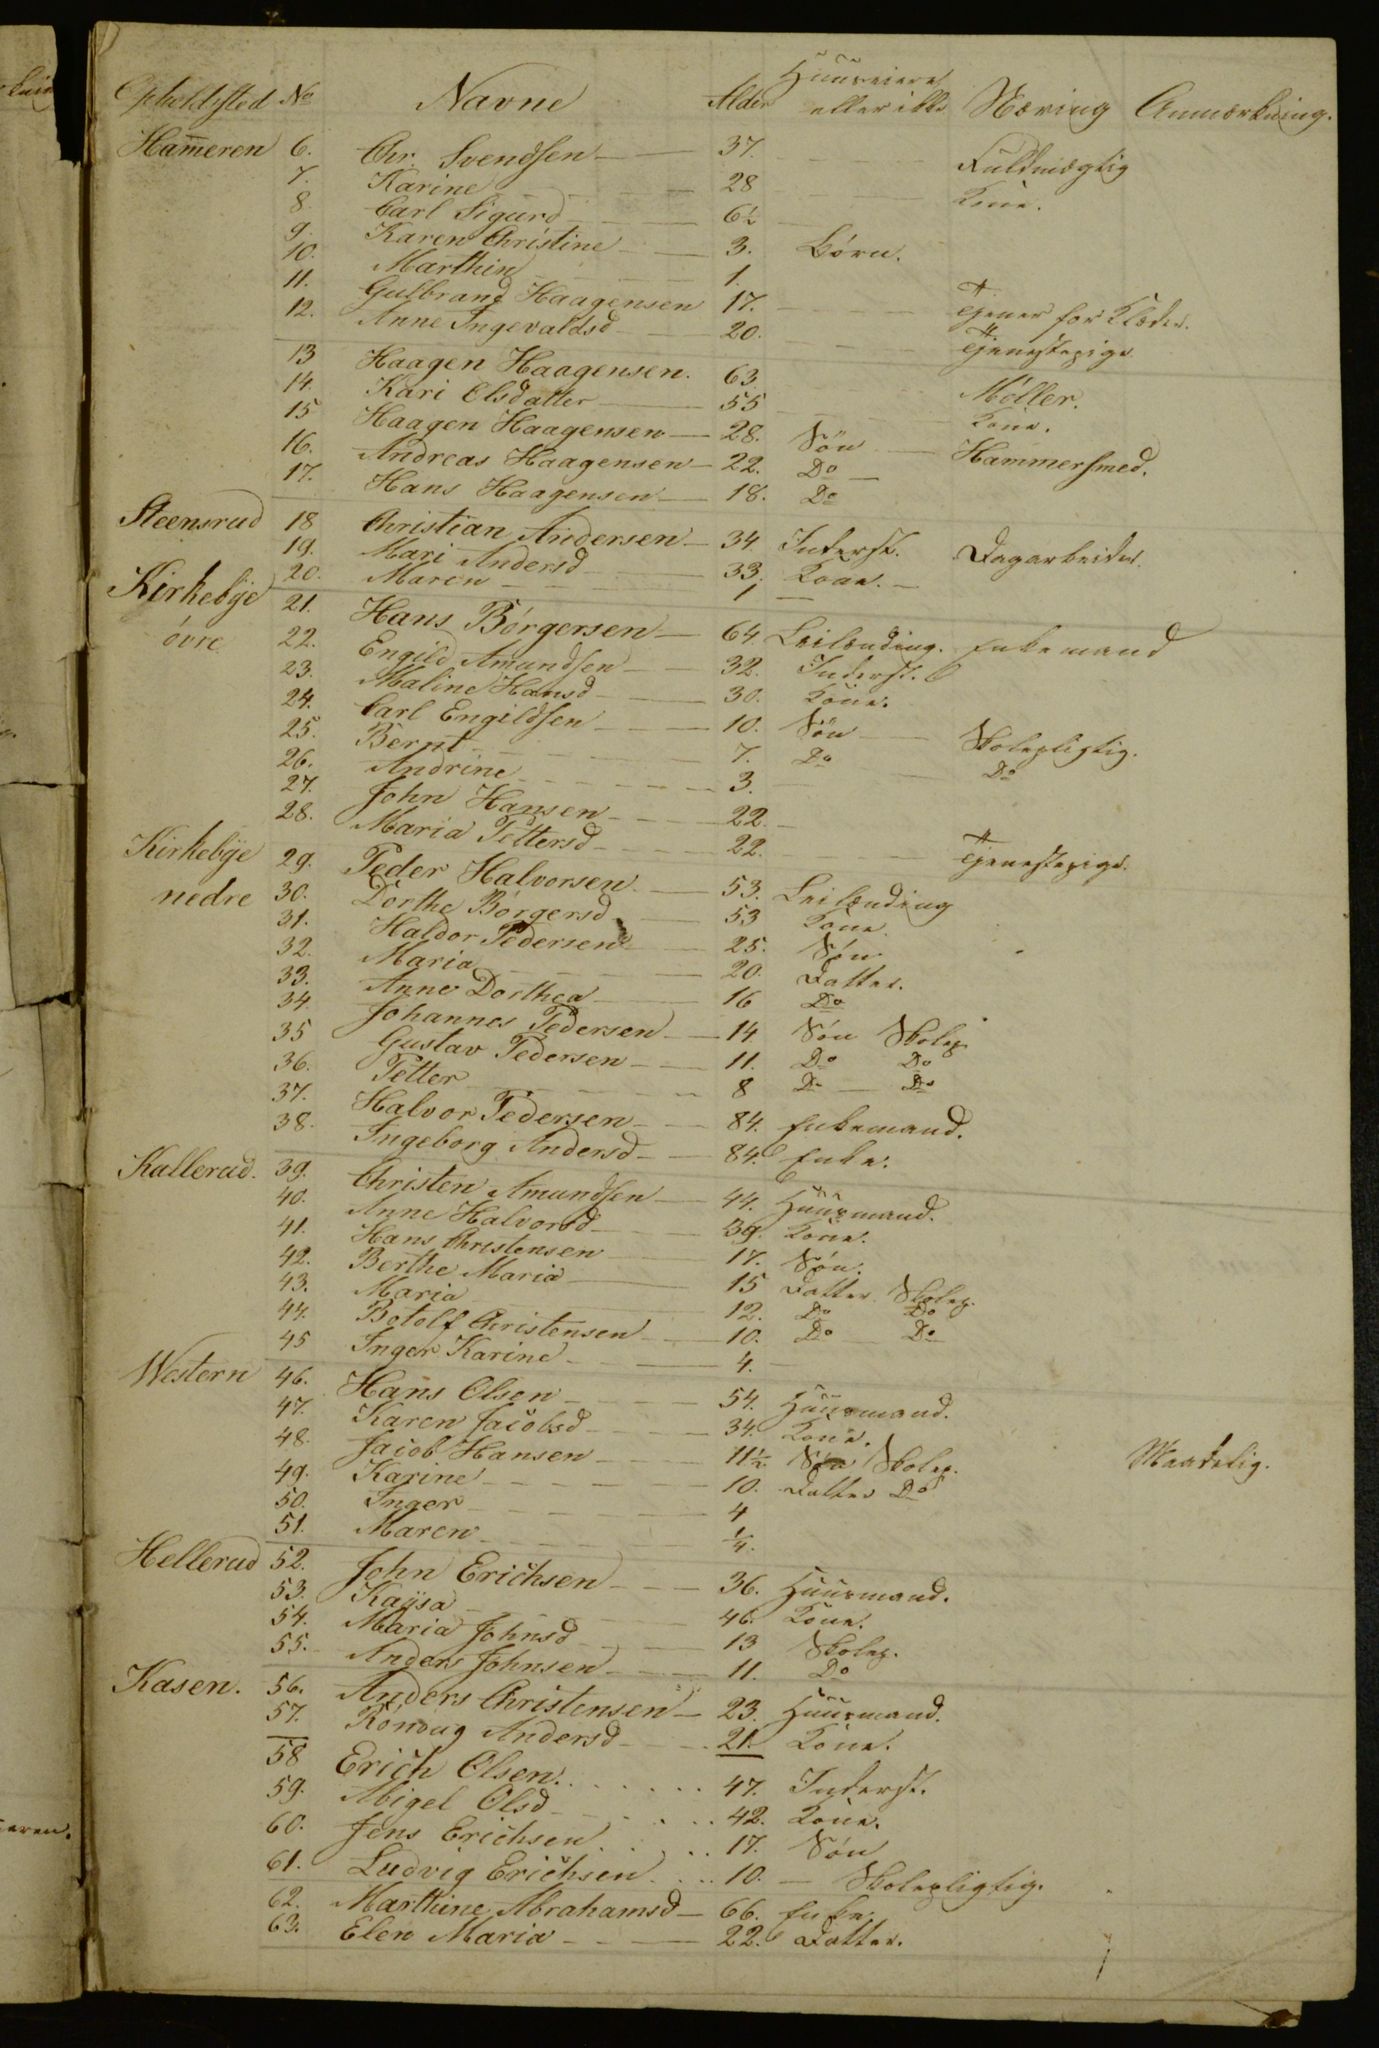 Opholdssted No Navne Alder Huuseiere eller ikke Næring Anmærkning.
Hammeren 6. Chr. Svendsen 37. Fuldmægtig
7. Karine 28 Kone.
8. Carl Sigurd 6½
9. Karen Christine 3. Børn.
10. Marthin 1.
11. Gulbrand Haagensen 17. Tjener for Klæder.
12. Anne Ingevaldsd 20. Tjenestepige
13 Haagen Haagensen. 63. Møller.
14. Kari Olsdatter 55 Kone.
15 Haagen Haagensen 28. Søn Hammersmed.
16. Andreas Haagensen 22. Do
17. Hans Haagensen 18. Do
Steensrud 18 Christian Andersen 34 Inderst. Dagarbeider
19. Mari Andersd 33. Kone.
20. Maren 1
Kirkebye øvre 21. Hans Børgersen 64 Leilænding. Enkemand
22. Engild Amundsen 32. Inderst.
23. Maline Hansd 30. Kone.
24. Carl Engildsen 10. Søn Skolepligtig.
25. Bernt 7. Do Do
26. Andrine 3.
27. John Hansen 22.
28. Maria Pettersd 22. Tjenestepige.
Kirkebye nedre 29. Peder Halvorsen 53. Leilænding
30. Dorthe Børgersd 53 Kone.
31. Haldor Pedersen 25. Søn
32. Maria 20. Datter.
33. Anne Dorthea 16 Do
34 Johannes Pedersen 14 Søn Skolep.
35 Gustav Pedersen 11. Do Do
36. Petter 8 Do Do
37. Halvor Pedersen 84. Enkemand.
38. Ingeborg Andersd 84. Enke.
Kallerud. 39. Christen Amundsen 44. Huusmand.
40. Anne Halvorsd 39. Kone.
41. Hans Christensen 17. Søn.
42. Berthe Maria 15 Datter Skolep.
43. Maria 12. Do Do
44. Botolf Christensen 10. Do Do
45 Inger Karine 4.
Western 46. Hans Olsen 54. Huusmand.
47. Karen Jacobsd 34. Kone.
48. Jacob Hansen 11½ Søn Skolep. Maadelig.
49. Karine 10. Datter Do
50. Inger 4
51. Maren ¼.
Hellerud 52. John Erichsen 36. Huusmand.
53. Kaÿsa 46. Kone.
54. Maria Johnsd 13 Skolep.
55. Anders Johnsen 11. Do
Kasen. 56. Anders Christensen 23. Huusmand.
57. Rönoug Andersd 21. Kone.
58 Erich Olsen. 47. Inderst.
59. Abigel Olsd 42. Kone.
60. Jens Erichsen 17. Søn
61. Ludvig Erichsen 10. Skolepligtig.
62. Marthine Abrahamsd 66. Enke.
63. Elen Maria 22. Datter.